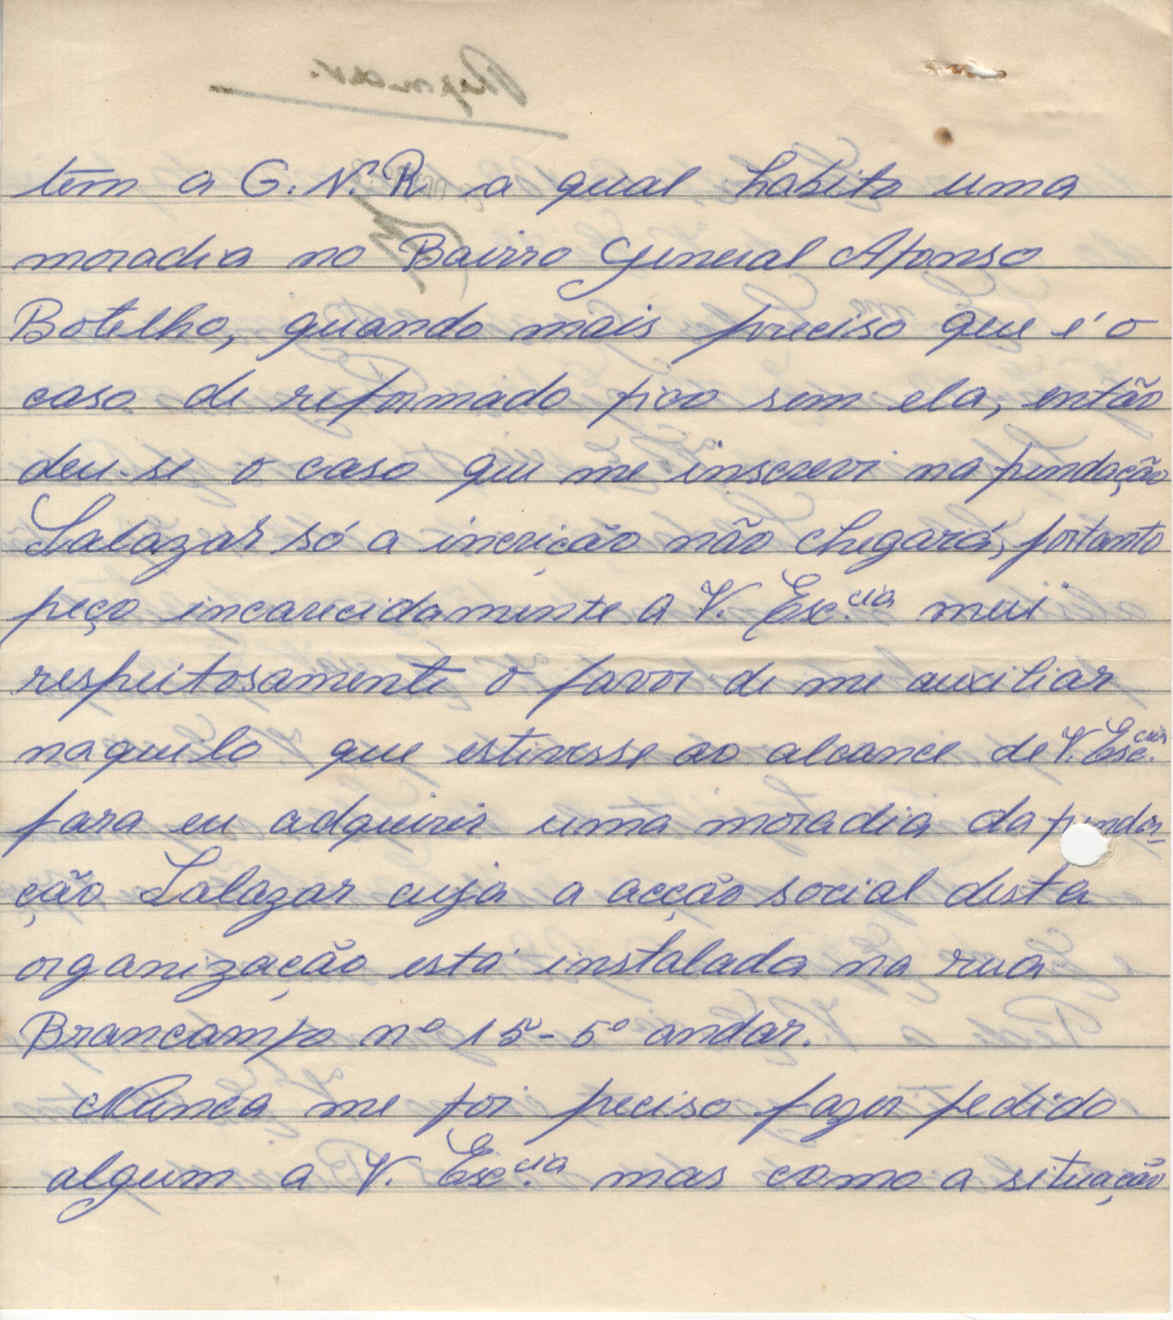 tem a G. N. R a qual habito uma
moradia no Bairro General Afonso
Botelho, quando mais preciso que é o
caso de reformado fico sem ela, então
deu-se o caso que me inscrevi na fundação
Salazar só a incrição não chegará, portanto
peço incarecidamente a V. Esc.cia mui
respeitosamente o favor de me auxiliar
naquelo que estivesse ao alcance de V. Esc.cia
para eu adquirir uma moradia da funda-
ção Salazar cuja a acção social desta
organização está instalada na rua
Brancampo nº 15-5º andar.
Nunca me foi preciso fazer pedido
algum a V. Esc.cia mas como a situação